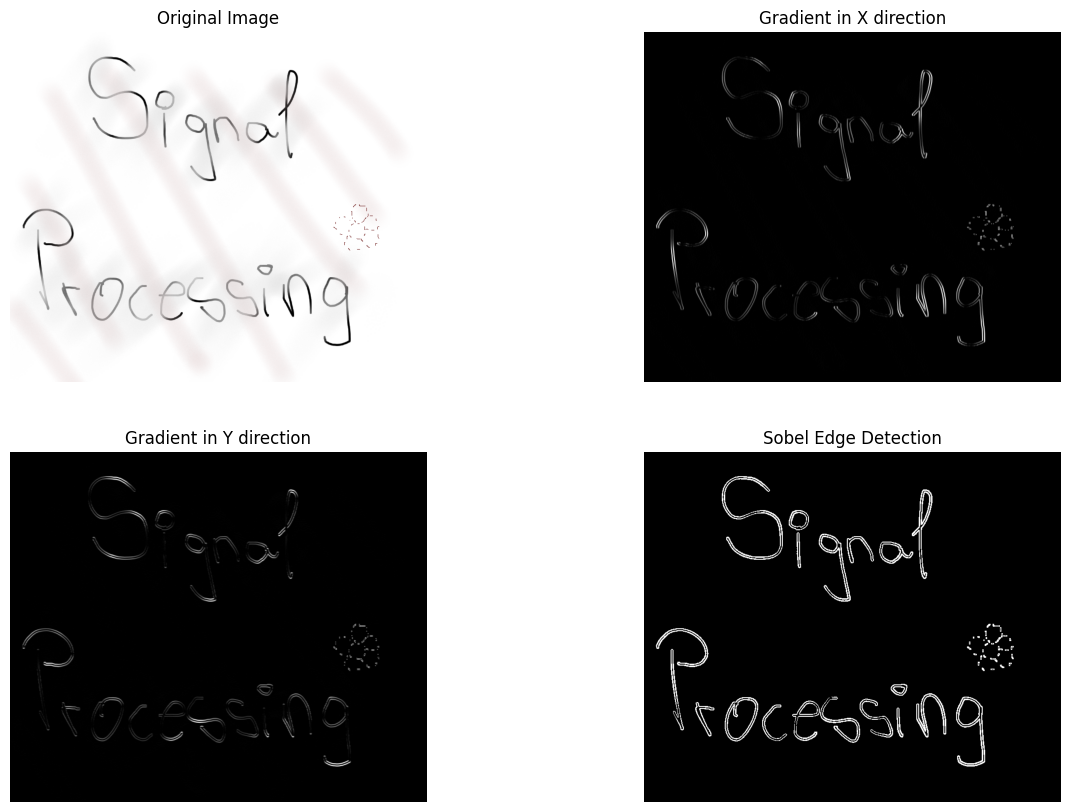 Original Image
Signal
Processing
Gradient in X direction
Signal
Processing
Gradient in Y direction
Signal
Processing
Sobel Edge Detection
Signal
Processing